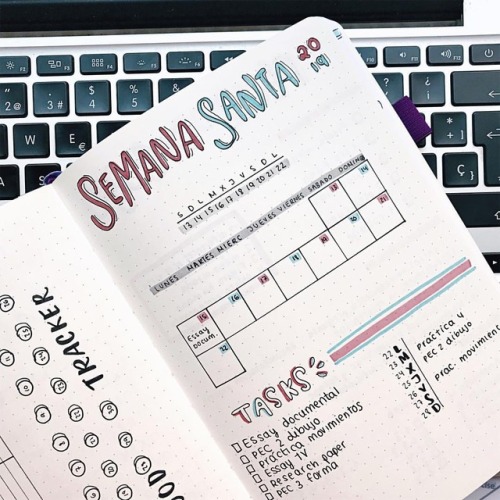 SEMANA SANTA 2019
S D L M X J V S D L
13 14 15 16 17 18 19 20 21 22
LUNES MARTES MIERC JUEVES VIERNES SÁBADO DOMINGO
13 14
15 16 17 18 19 20 21
Essay
Docum.
22
TASKS
Essay documental
PEC 2 dibujo
práctica movimientos
Essay TV
Research gager
PEC 3 forma
22 L práctica 4
23 M PEC 2 dibujo
24 X
25 J prac. movimien
26 V
27 S
28 D
TRACKER
OOD